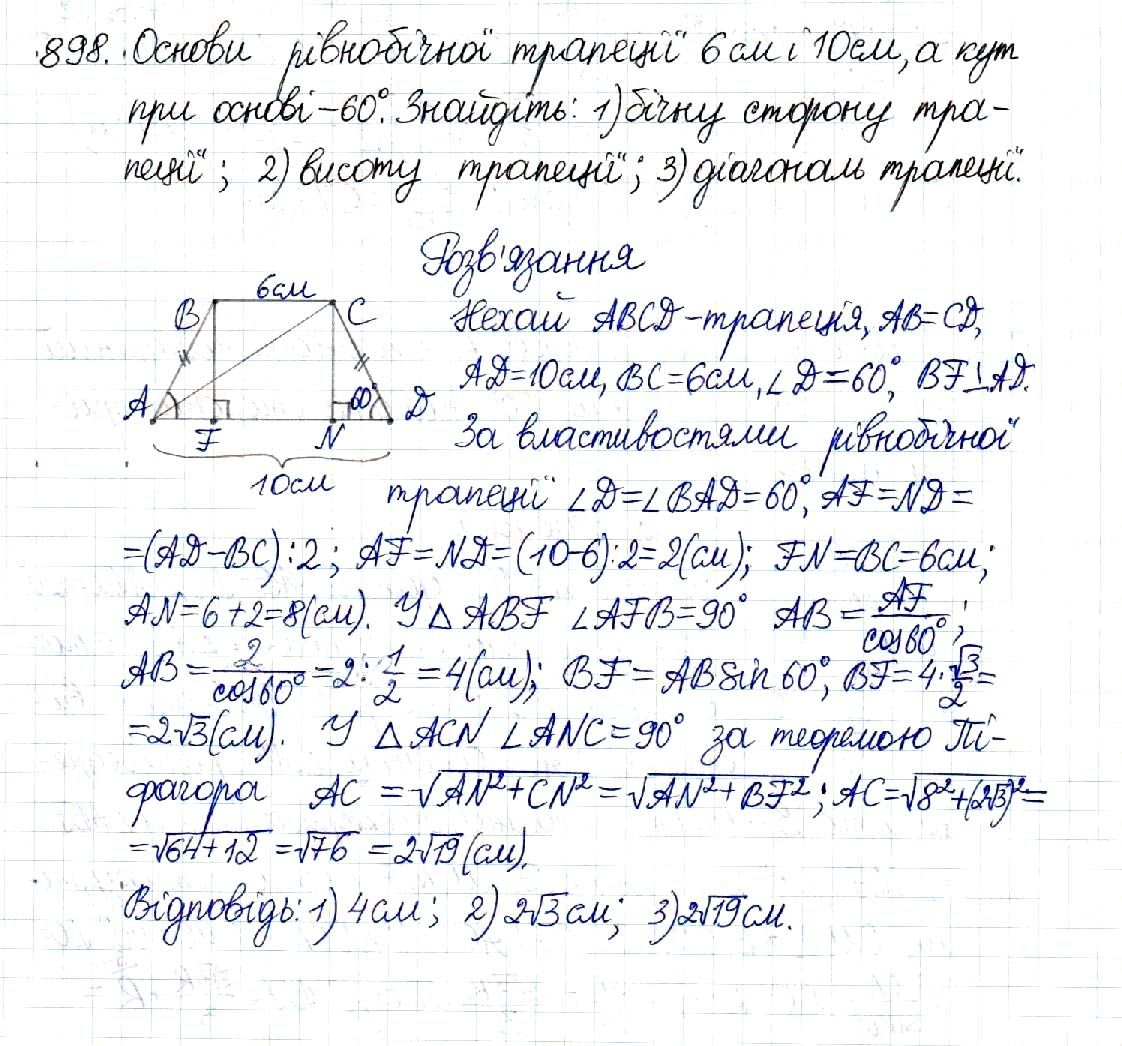 898. Основи рівнобічної трапеції 6 см і 10 см, а кут
при основі – 60°. Знайдіть: 1) бічну сторону тра-
пеції; 2) висоту трапеції; 3) діагональ трапеції.
Розв'язання
6 см
B C
A F N D
60°
10 см
Нехай ABCD – трапеція, AB = CD,
AD = 10 см, BC = 6 см, ∠D = 60°, BF ⊥ AD.
За властивостями рівнобічної
трапеції ∠D = ∠BAD = 60°, AF = ND =
= (AD – BC) : 2; AF = ND = (10 – 6) : 2 = 2 (см); FN = BC = 6 см;
AN = 6 + 2 = 8 (см). У △ABF ∠AFB = 90° AB = AF/cos60°;
AB = 2/cos60° = 2 : 1/2 = 4 (см); BF = AB sin 60°, BF = 4 · √3/2 =
= 2√3 (см). У △ACN ∠ANC = 90° за теоремою Пі-
фагора AC = √(AN² + CN²) = √(AN² + BF²); AC = √(8² + (2√3)²) =
= √(64 + 12) = √76 = 2√19 (см).
Відповідь: 1) 4 см; 2) 2√3 см; 3) 2√19 см.